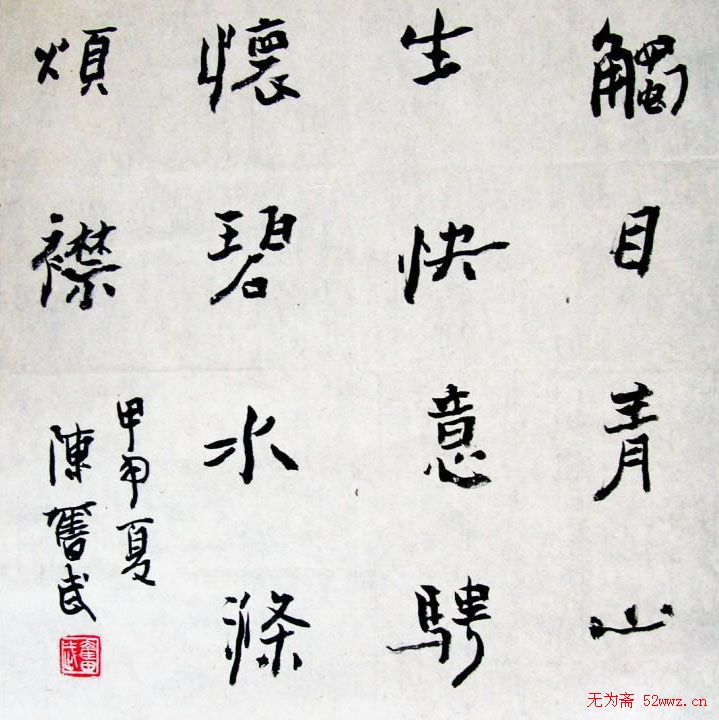 觸目青山
生快意騁
懷碧水滌
煩襟
甲申夏
陳奮武
无为斋 52wwz.cn